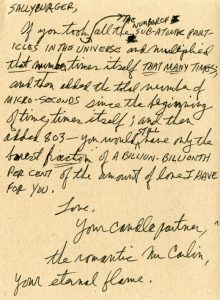 SALLYBURGER,
THE NUMBER OF
If you took all the SUB-ATOMIC PART-
ICLES IN THE UNIVERSE and multiplied
that number times itself THAT MANY TIMES;
and then added the total number of
MICRO-SECONDS since the beginning
of time, times itself; and then
added 803 — you would have only the
barest fraction of A BILLION-BILLIONTH
PER CENT OF the amount of love I HAVE
FOR YOU.
Love,
Your candle partner,
the romantic Mr Carlin,
Your eternal flame.